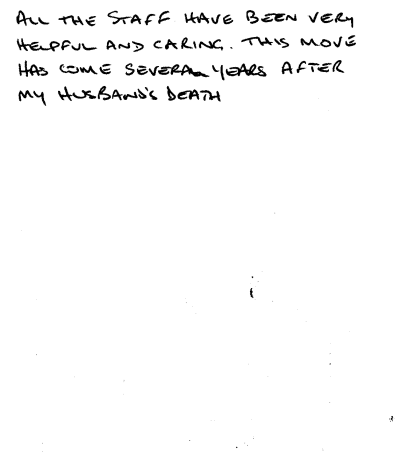 ALL THE STAFF HAVE BEEN VERY
HELPFUL AND CARING. THIS MOVE
HAS COME SEVERAL YEARS AFTER
MY HUSBAND'S DEATH